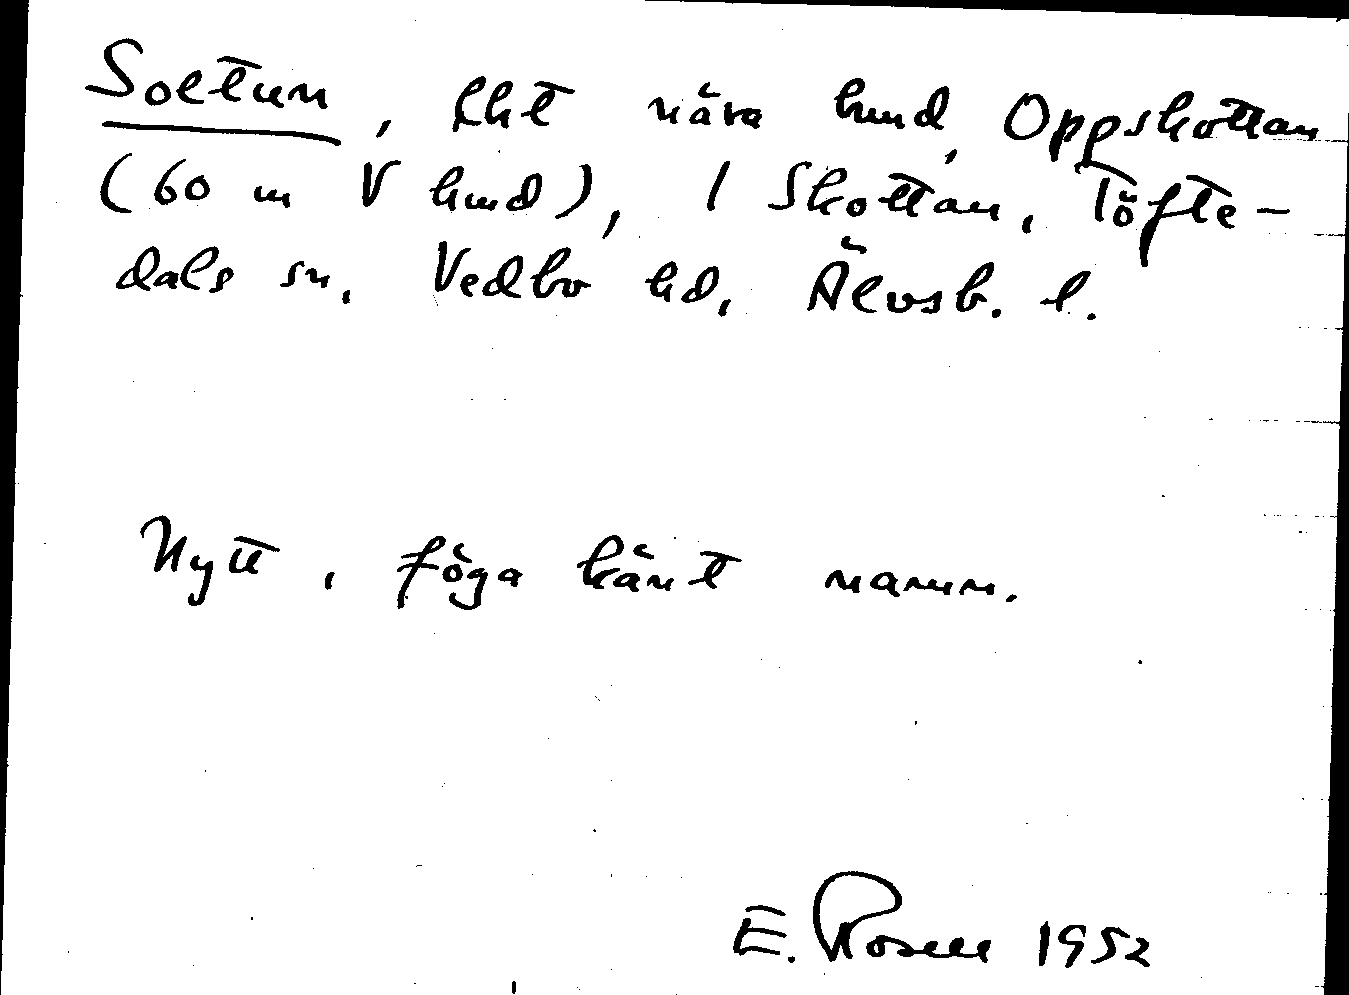 Soltun, lht nära hmd, Oppskottan
(60 m V hmd), 1 Skottan, Töfte-
dals sn, Vedbo hd, Älvsb. l.
Nytt, föga känt namn.
E. Rosell 1952